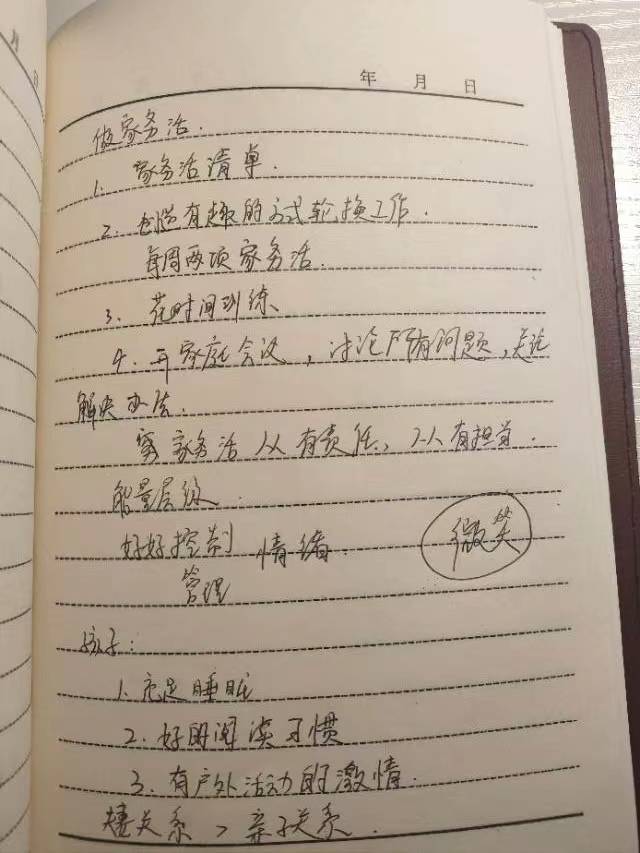 年 月 日
做家务活.
1. 家务活清单.
2. 创造有趣的方式轮换工作.
每周两项家务活.
3. 花时间训练
4. 开家庭会议, 讨论所有问题, 无论
解决办法.
家务活 人有责任, 人人有担当.
能量层级.
好好控制 情绪. 微笑
管理
孩子:
1. 充足睡眠
2. 好的阅读习惯
3. 有户外活动的激情.
夫妻关系 > 亲子关系.